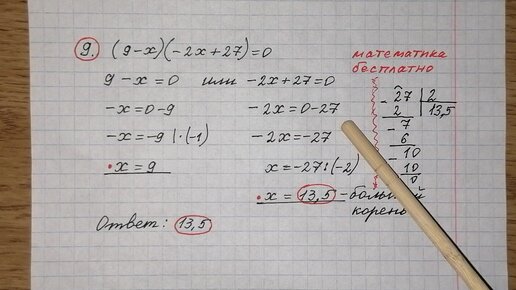 9. (9-x)(-2x+27)=0
9-x=0 или -2x+27=0
-x=0-9
-x=-9 |·(-1)
x=9
-2x=0-27
-2x=-27
x=-27:(-2)
x=13,5 - больший
корень
Ответ: 13,5
математика
бесплатно
27 | 2
2 13,5
- 7
6
- 10
10
0